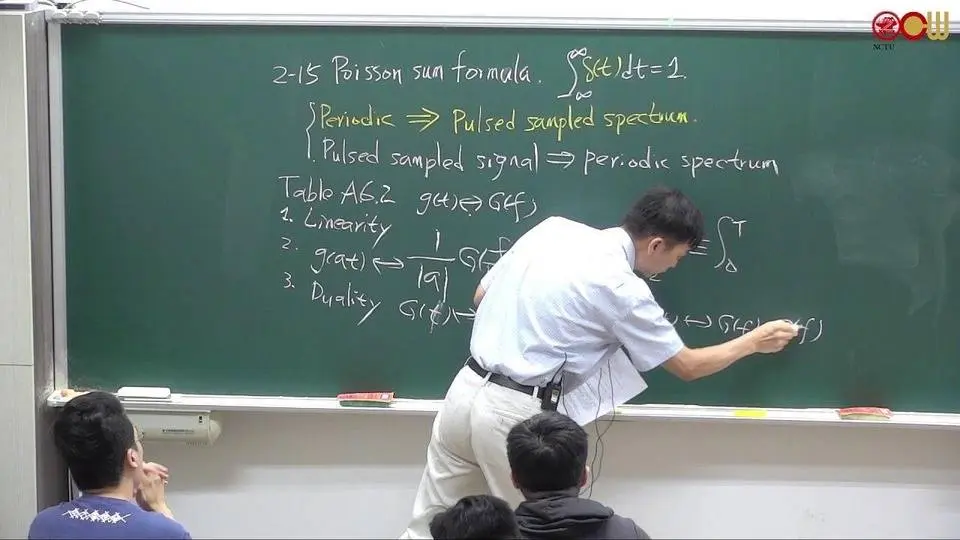 2-15 Poisson sum formula. ∫_{-∞}^{∞} δ(t)dt = 1.
Periodic ⇒ Pulsed sampled spectrum.
Pulsed sampled signal ⇒ periodic spectrum
Table A6.2 g(t) ↔ G(f)
1. Linearity
2. g(at) ↔ 1/|a| G(f
≡ ∫_0^T
3. Duality G(t) ↔
↔ G(f) (f)
OCW
NCTU